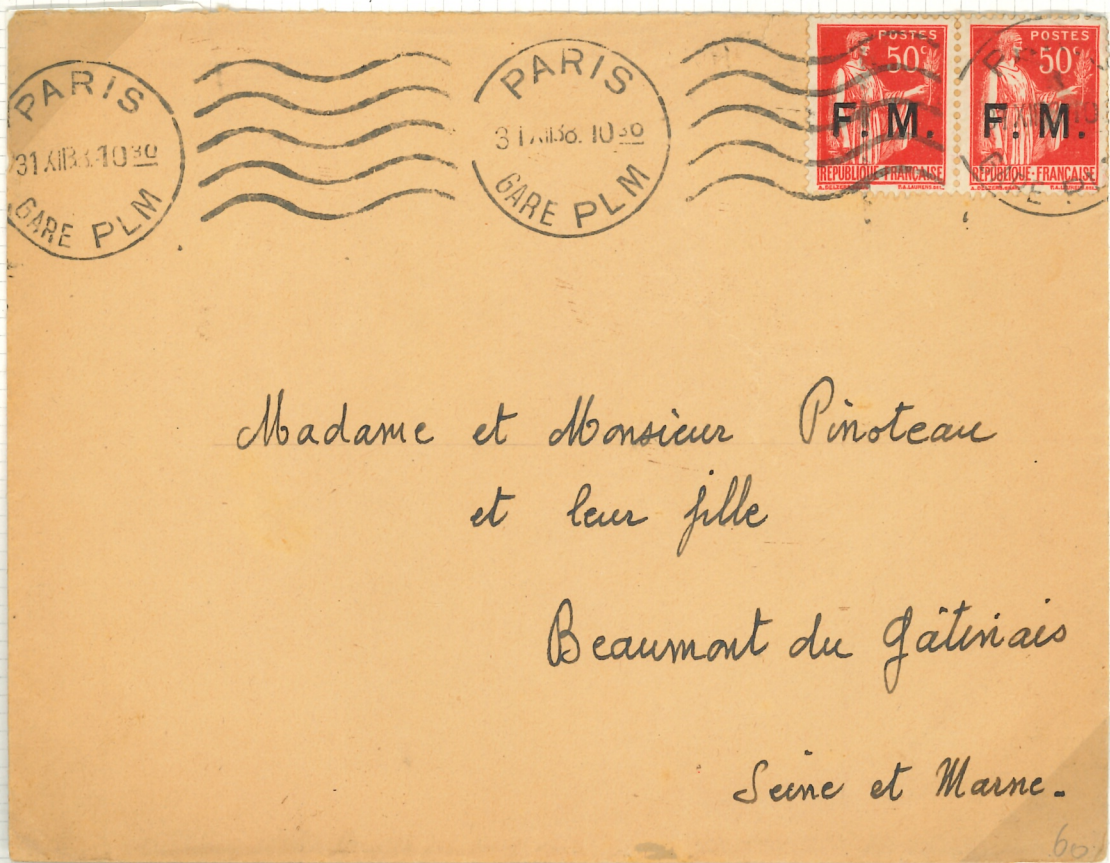 PARIS
31 XII 38. 10 30
GARE PLM
PARIS
31 XII 38. 10 30
GARE PLM
POSTES
50c
F. M.
RÉPUBLIQUE·FRANÇAISE
POSTES
50c
F. M.
RÉPUBLIQUE·FRANÇAISE
Madame et Monsieur Pinoteau
et leur fille
Beaumont du Gâtinais
Seine et Marne.
60